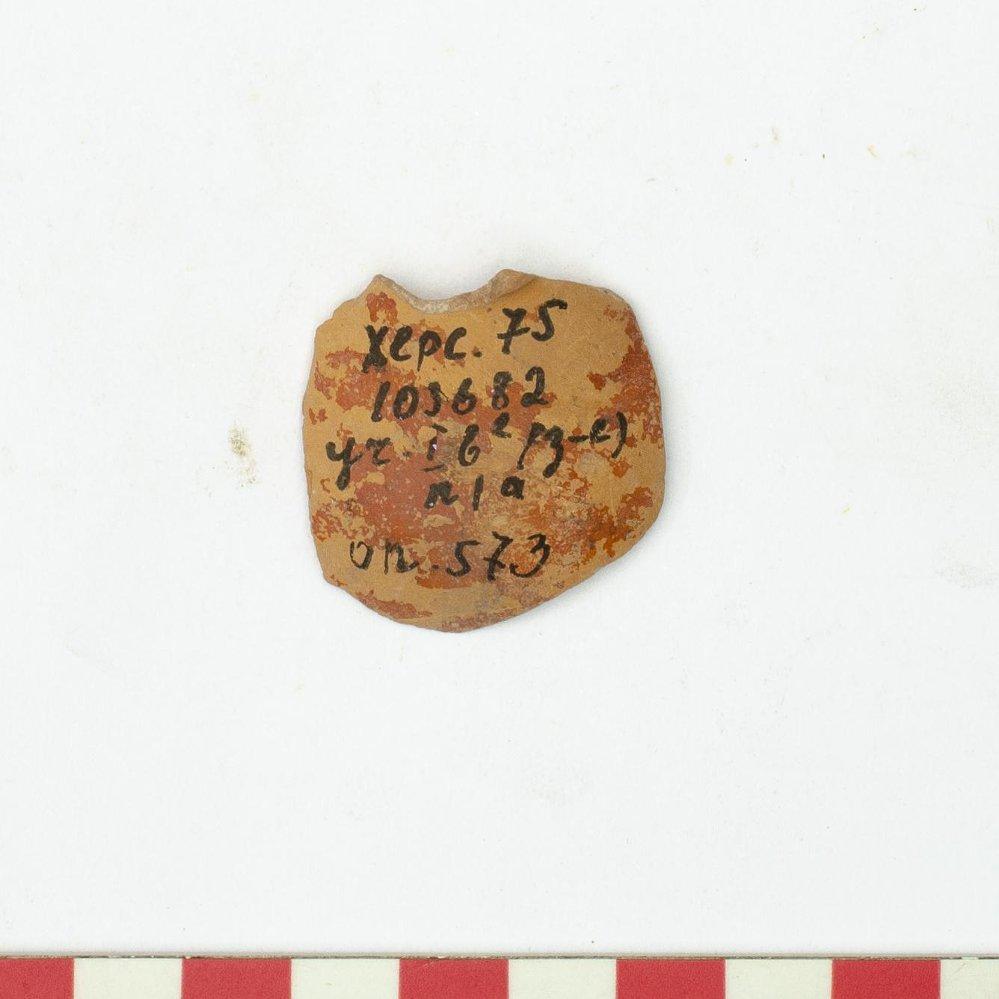 Херс. 75
103682
уч. I б² (з-е)
п/а
оп. 573